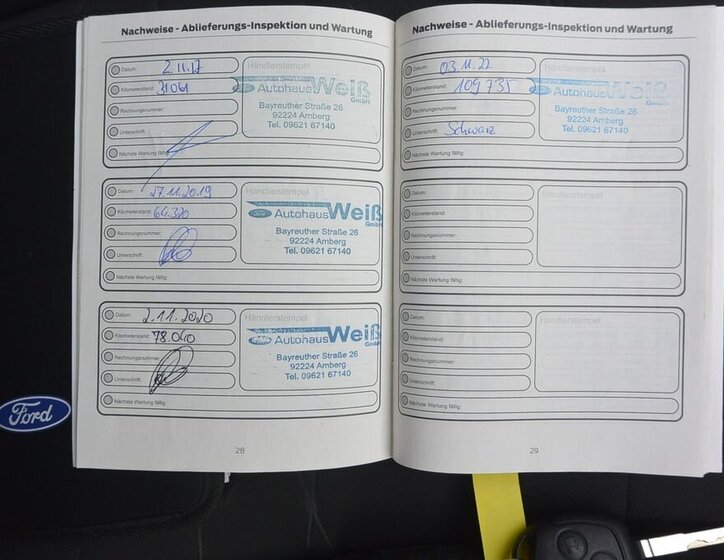 Nachweise - Ablieferungs-Inspektion und Wartung
Datum: 2.11.17
Kilometerstand:
Rechnungsnummer:
Unterschrift:
Nächste Wartung fällig:
Händlerstempel
Autohaus Weiß GmbH
Bayreuther Straße 26
92224 Amberg
Tel. 09621 67140
Datum: 27.11.2019
Kilometerstand: 64.320
Rechnungsnummer:
Unterschrift:
Nächste Wartung fällig:
Händlerstempel
Ford Autohaus Weiß GmbH
Bayreuther Straße 26
92224 Amberg
Tel. 09621 67140
Datum: 2.11.2020
Kilometerstand: 78.040
Rechnungsnummer:
Unterschrift:
Nächste Wartung fällig:
Händlerstempel
Autohaus Weiß GmbH
Bayreuther Straße 26
92224 Amberg
Tel. 09621 67140
28
Nachweise - Ablieferungs-Inspektion und Wartung
Datum: 03.11.22
Kilometerstand: 109735
Rechnungsnummer:
Unterschrift: Schwarz
Nächste Wartung fällig:
Händlerstempel
Autohaus Weiß GmbH
Bayreuther Straße 26
92224 Amberg
Tel. 09621 67140
Datum:
Kilometerstand:
Rechnungsnummer:
Unterschrift:
Nächste Wartung fällig:
Händlerstempel
Datum:
Kilometerstand:
Rechnungsnummer:
Unterschrift:
Nächste Wartung fällig:
Händlerstempel
29
Ford